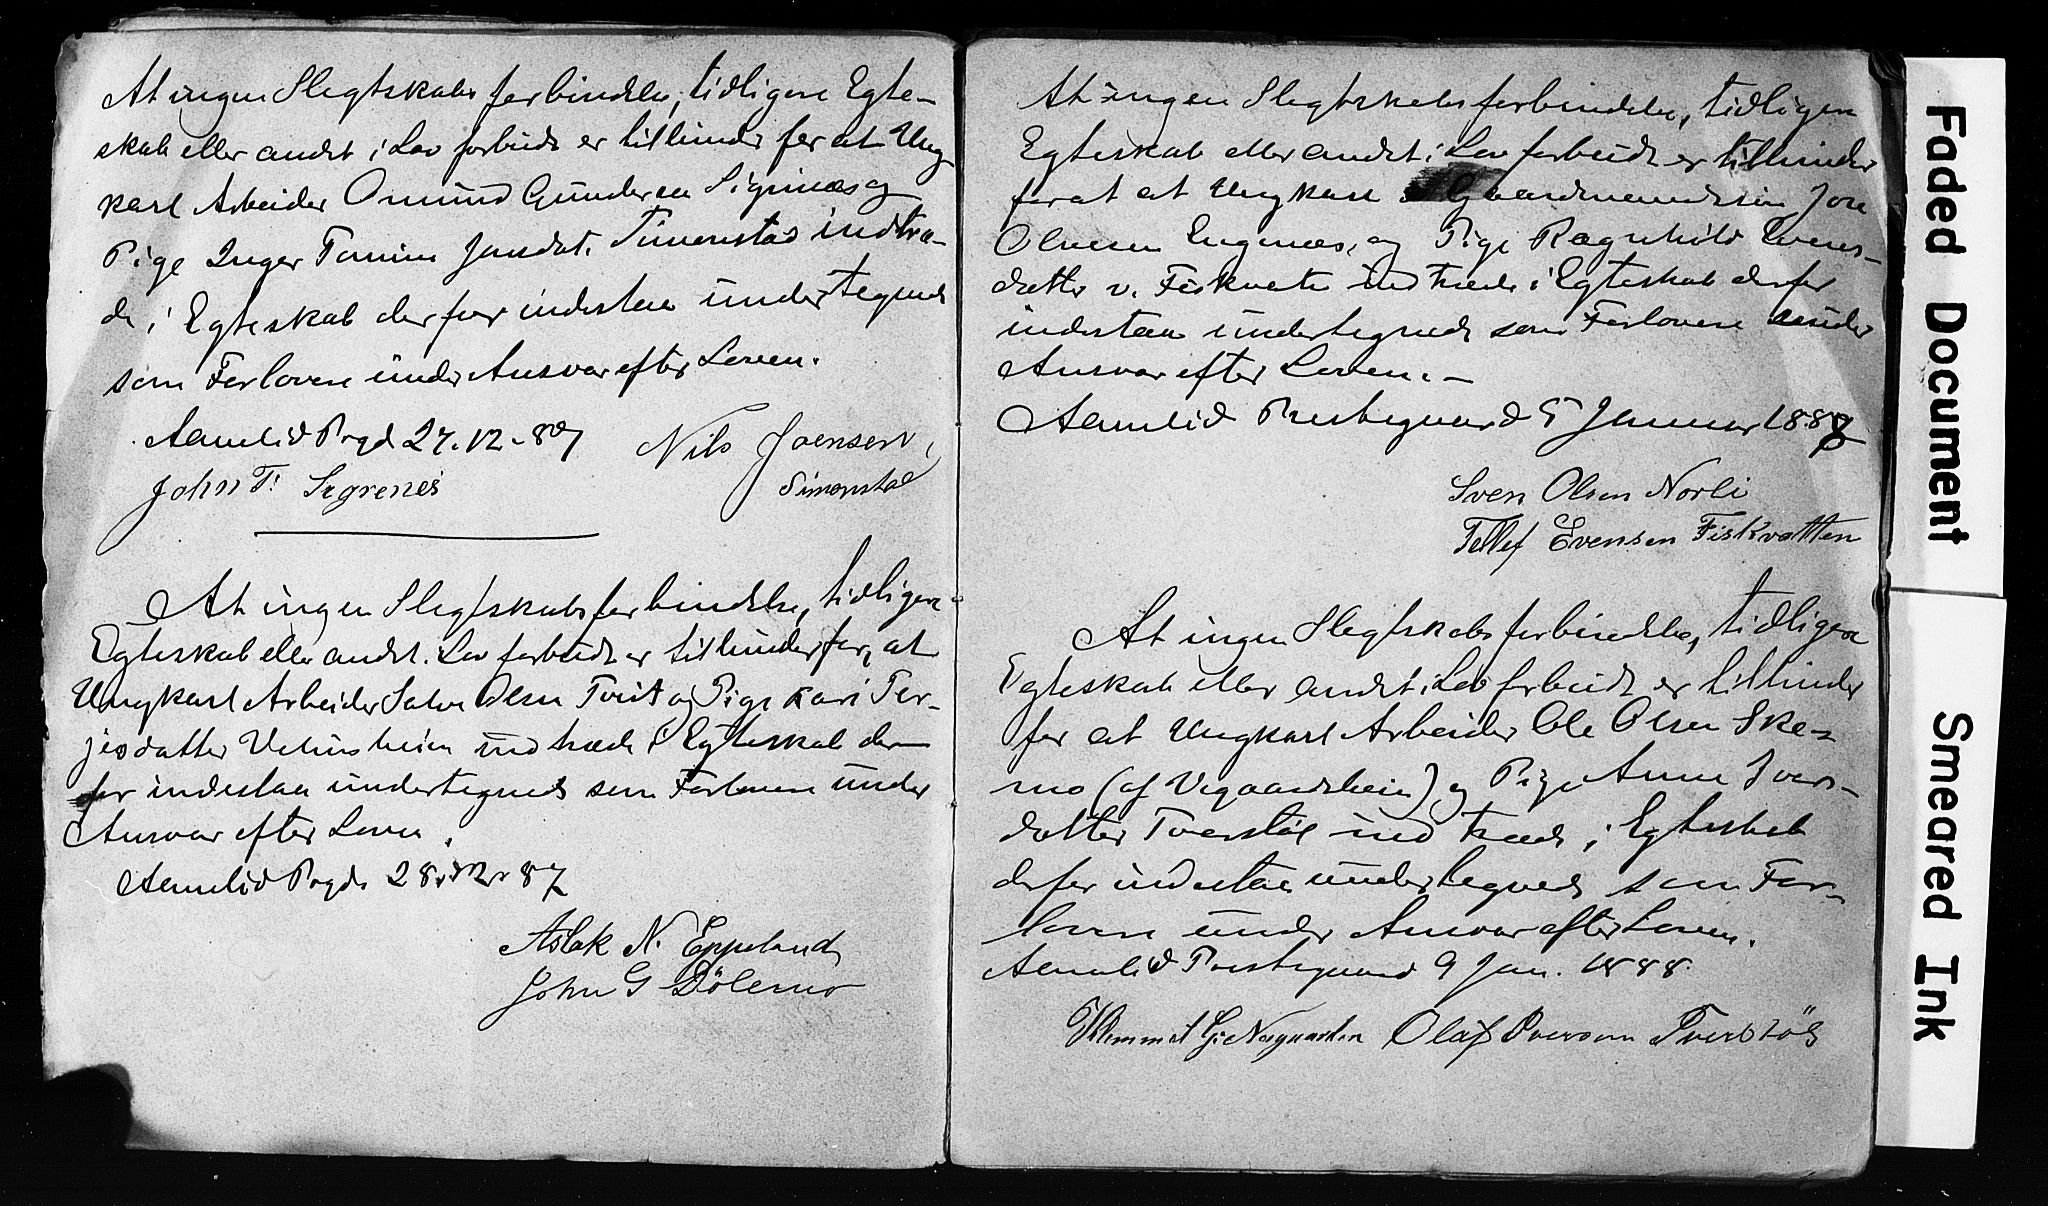 At ingen Slegtskabsforbindelse, tidligere Egte-
skab eller andet i Lov forbudt er til hinder for at Ung-
karl Arbeider Omund Gundersen Sigrinæs og
Pige Inger Tomine Jonsdat. Simonstad indtræ-
de i Egteskab derfor indestaa undertegnede
som Forlovere under Ansvar efter Loven.
Aamlid Prgd 27.12-87
Nils Joensen
Simonstad
John T. Segrenes
At ingen Slegtskabsforbindelse, tidligere
Egteskab eller andet i Lov forbudt er til hinder for, at
Ungkarl Arbeider Salve Olsen Tveit og Pige Kari Ter-
jesdatter indtræde i Egteskab der-
for indestaa undertegnede som Forlovere under
Ansvar efter Loven.
Aamlid Prgd 28.12.87
Aslak N. Eppeland
John G Dölemo
At ingen Slegtskabsforbindelse, tidligere
Egteskab eller andet i Lov forbudt er til hinder
for at at Ungkarl Gaardmandssøn Jon
Olsen Engenæs, og Pige Ragnhild Evens-
datter v. Fiskvatn indtræde i Egteskab derfor
indestaa undertegnede som Forlovere under
Ansvar efter Loven.-
Aamlid Prestegaard 5 Januar 1888
Sven Olsen Norli
Tellef Evensen Fiskvatten
At ingen Slegtskabsforbindelse, tidligere
Egteskab eller andet i Lov forbudt er til hinder
for at Ungkarl Arbeider Ole Olsen Ske-
mo (af Vegaardsheien) og Pige Anne Ivars-
datter Tverstøl indtræde i Egteskab
derfor indestaa undertegnede som For-
lovere under Ansvar efter Loven.
Aamlid Prestegaard 9 Jan. 1888.
Olaf Iversen Tverstöl
Faded Document
Smeared Ink